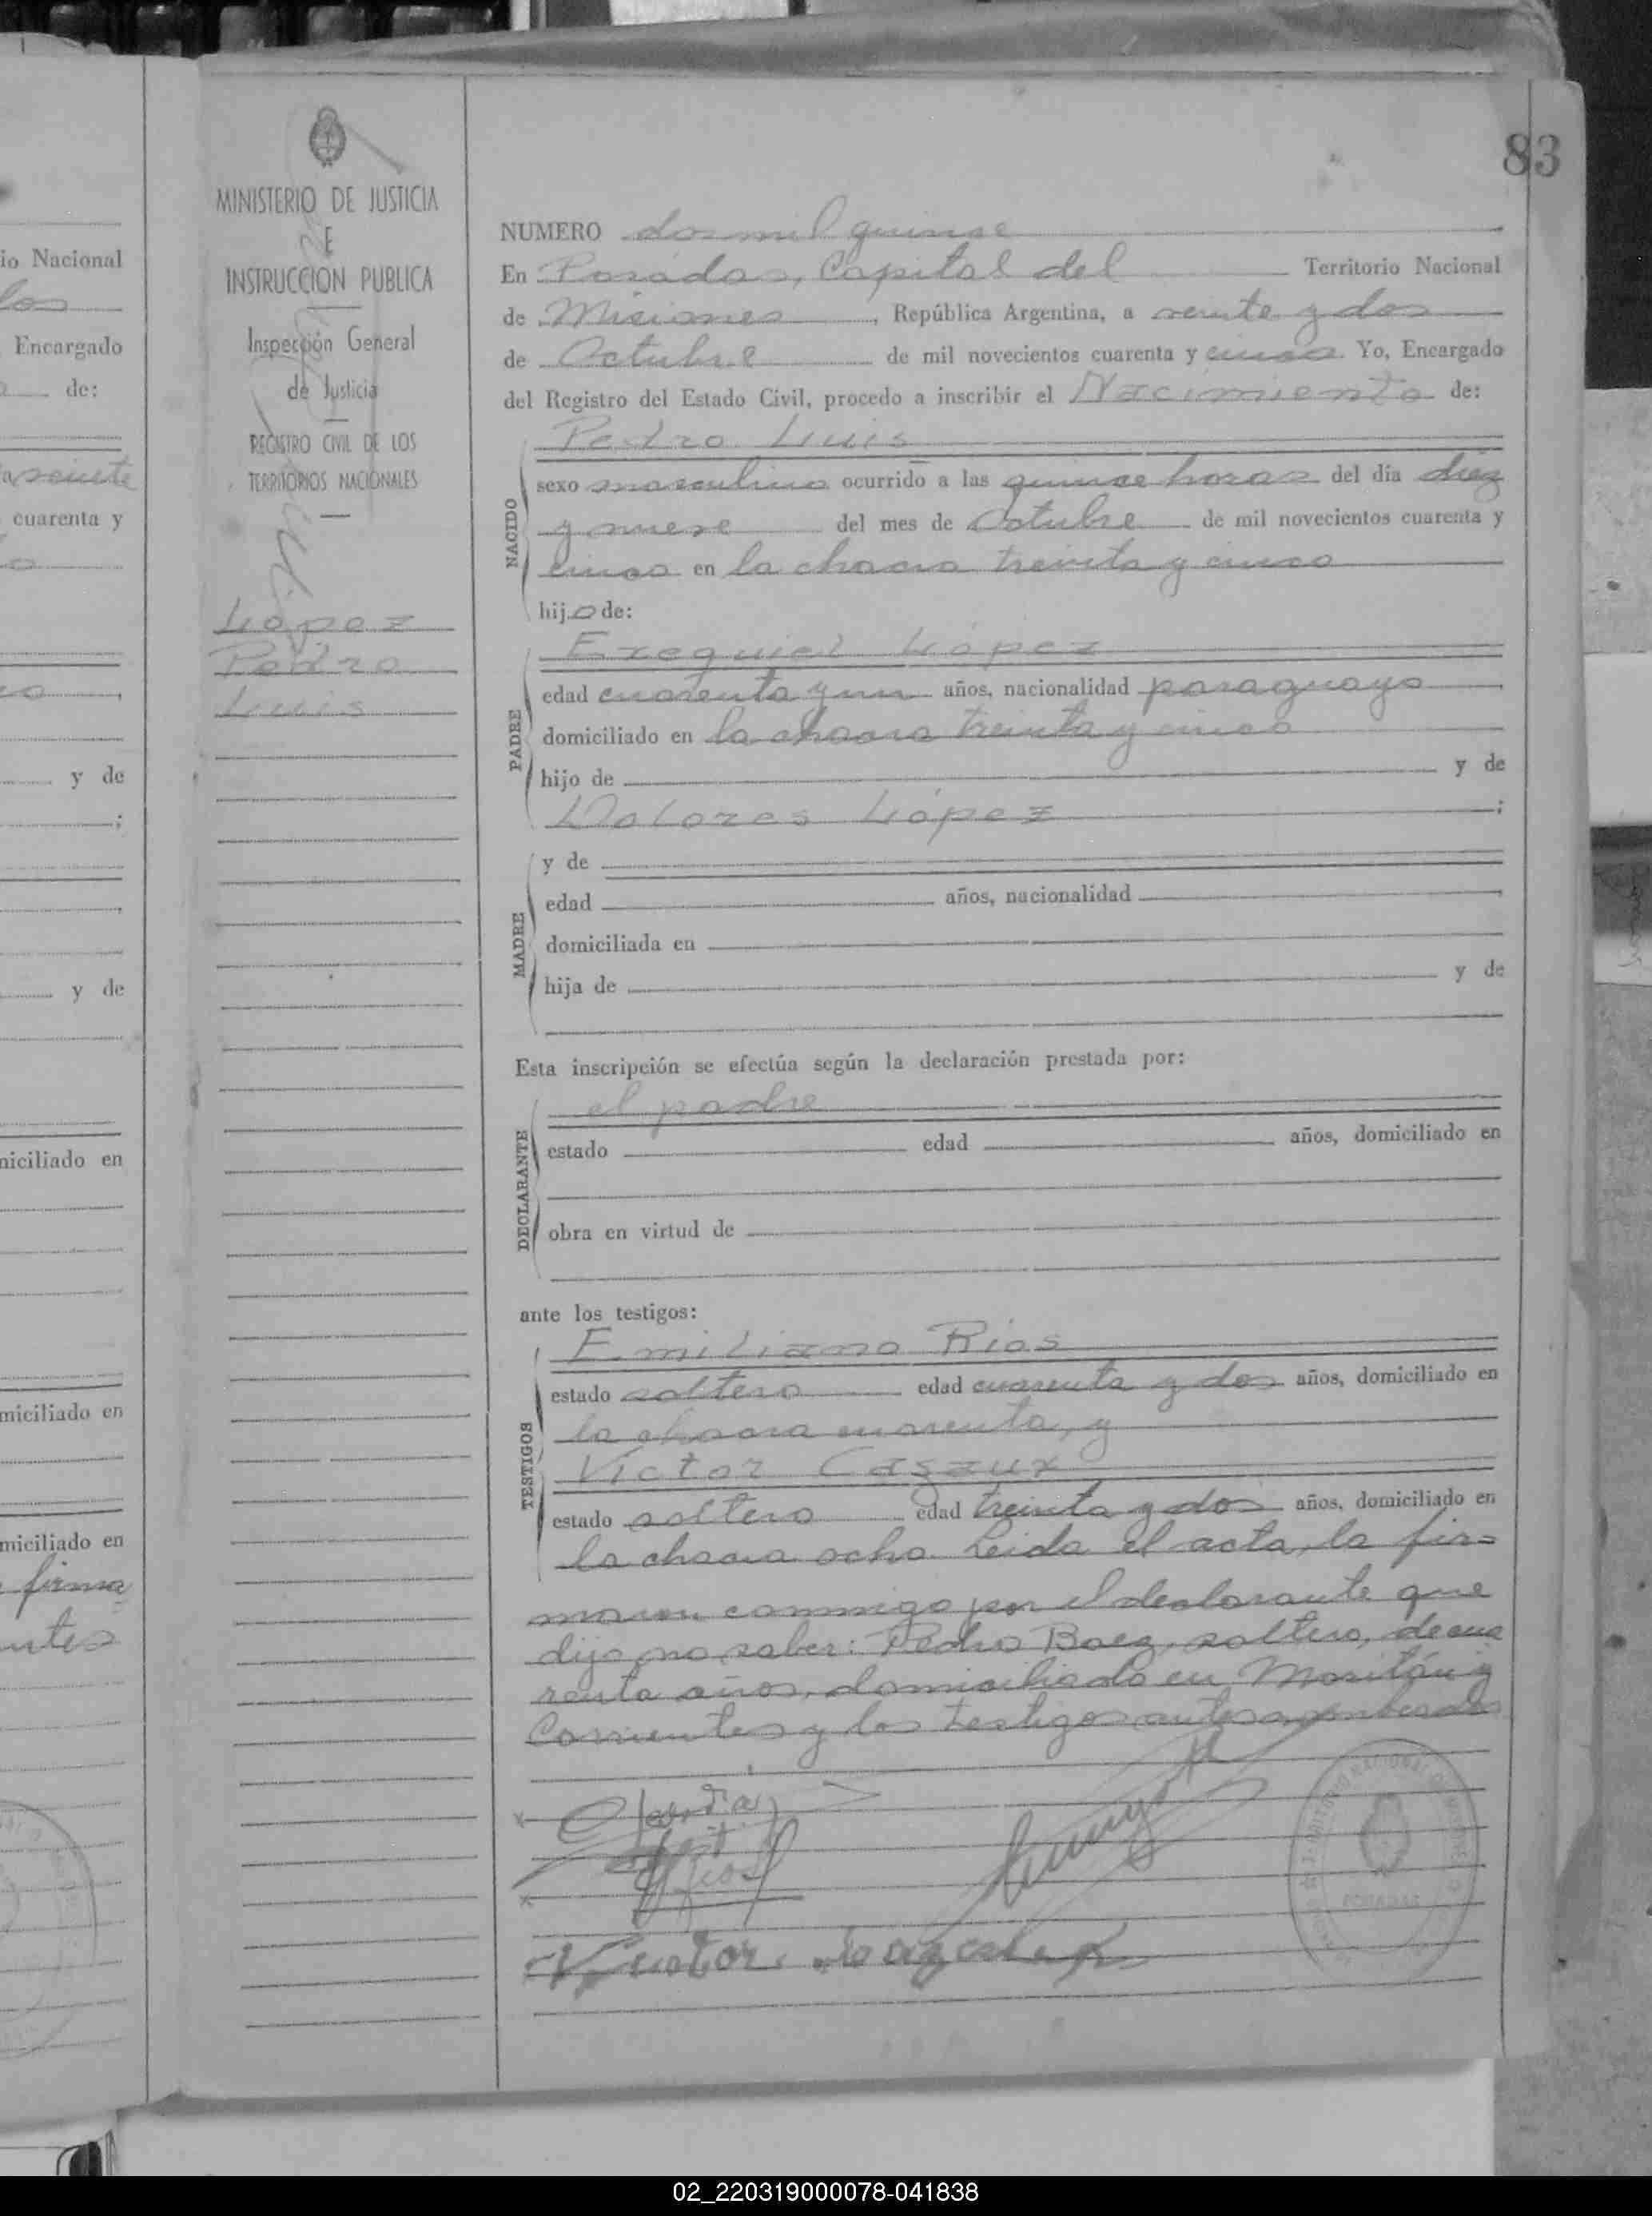 83
MINISTERIO DE JUSTICIA
E
INSTRUCCION PUBLICA
Inspección General
de Justicia
REGISTRO CIVIL DE LOS
TERRITORIOS NACIONALES
López
Pedro
Luis
NUMERO dosmil quinse
En Posadas, Capital del Territorio Nacional
de Misiones, República Argentina, a veinte y dos
de Octubre de mil novecientos cuarenta y cinco. Yo, Encargado
del Registro del Estado Civil, procedo a inscribir el Nacimiento de:
Pedro Luis
NACIDO
sexo masculino ocurrido a las quince horas del día diez
y nueve del mes de Octubre de mil novecientos cuarenta y
cinco en la chacra treinta y cinco
hijo de:
Exequiel López
PADRE
edad cuarenta y un años, nacionalidad paraguayo
domiciliado en la chacra treinta y cinco
hijo de y de
Dolores López;
MADRE
y de
edad años, nacionalidad
domiciliada en
hija de y de
Esta inscripción se efectúa según la declaración prestada por:
el padre
DECLARANTE
estado edad años, domiciliado en
obra en virtud de
ante los testigos:
Emiliano Rios
TESTIGOS
estado soltero edad cuarenta y dos años, domiciliado en
la chacra cuarenta, y
Víctor Cazaux
estado soltero edad treinta y dos años, domiciliado en
la chacra ocho. Leida el acta, la fir=
maron conmigo por el declarante que
dijo no saber: Pedro Baez, soltero, de cua
renta años, domiciliado en Maitán y
Corrientes y los testigos antes
POSADAS
io Nacional
los
Encargado
de:
a veinte
cuarenta y
y de
y de
niciliado en
miciliado en
miciliado en
firma
ntes
02_220319000078-041838